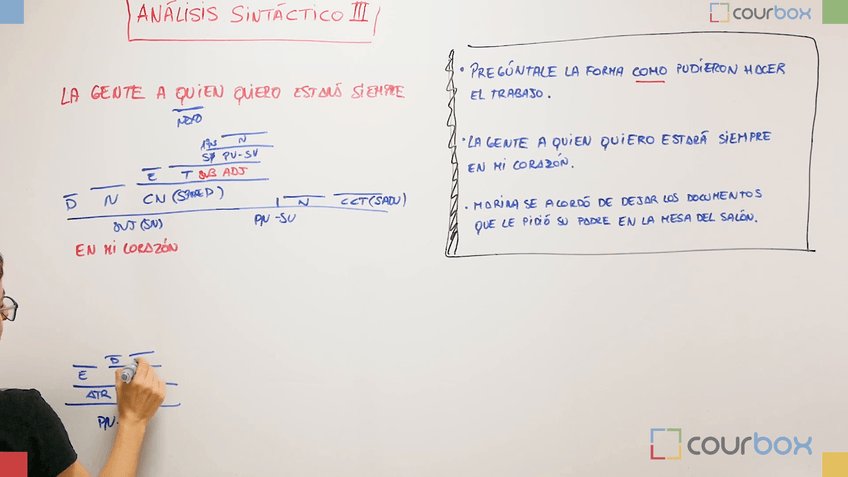 ANÁLISIS SINTÁCTICO III
courbox
LA GENTE A QUIEN QUIERO ESTARÁ SIEMPRE
NEXO
N
SV PV-SV
E T SUB ADJ
D N CN (SPREP) N CCT (SADV)
SUJ (SN) PN-SV
EN MI CORAZÓN
D
E
ATR
PN-
• PREGÚNTALE LA FORMA COMO PUDIERON HACER
EL TRABAJO.
• LA GENTE A QUIEN QUIERO ESTARÁ SIEMPRE
EN MI CORAZÓN.
• MARINA SE ACORDÓ DE DEJAR LOS DOCUMENTOS
QUE LE PIDIÓ SU PADRE EN LA MESA DEL SALÓN.
courbox